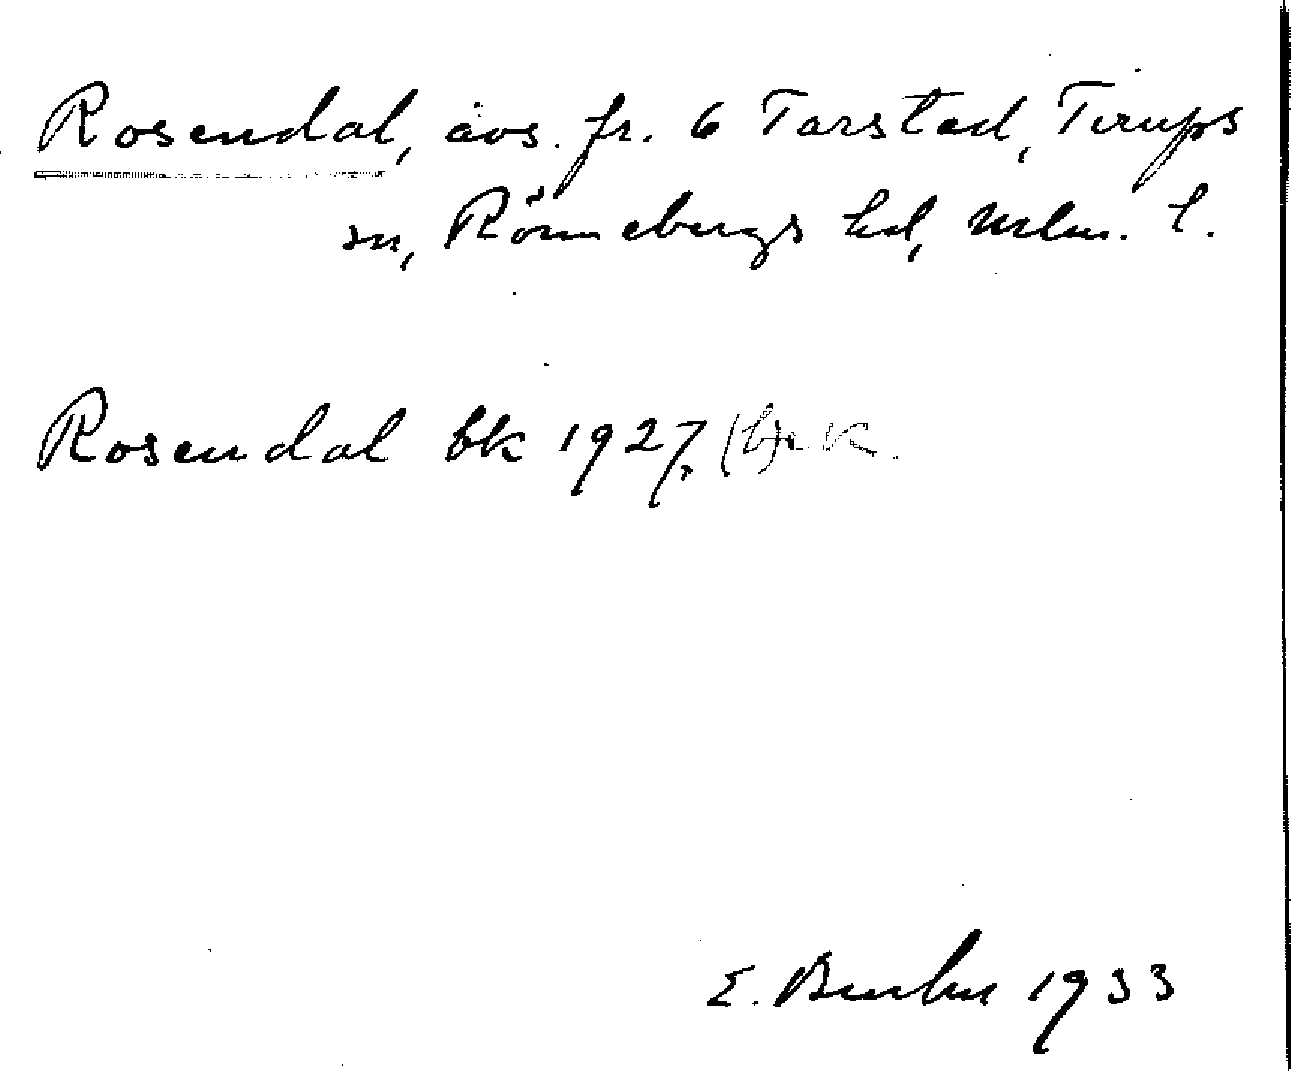 Rosendal, avs. fr. 6 Tarstad, Tirups
sn, Rönnebergs hd, Mlm. l.
Rosendal bk 1927.
E. 1933